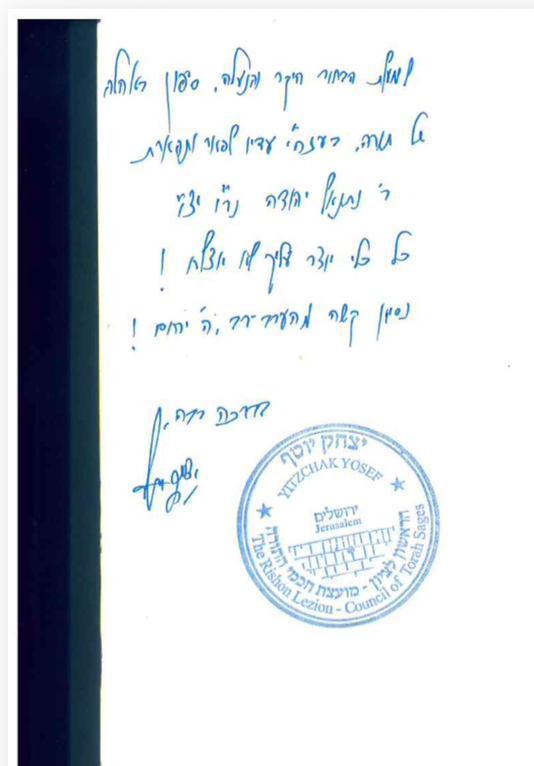 למעלת הבחור היקר והנעלה, סיפון באהלה
של תורה, בעזהי״ עדיו לפאר ותפארת
ר׳ נתנאל יהודה נר״ו יצ״ו
כל כלי יוצר עליך לא יצלח !
נסיון קשה מהערב־רב, ה׳ ירחם !
בברכה רבה,
יצחק יוסף
יצחק יוסף
YITZCHAK YOSEF
ירושלים
Jerusalem
הראשון לציון - מועצת חכמי התורה
The Rishon Lezion - Council of Torah Sages